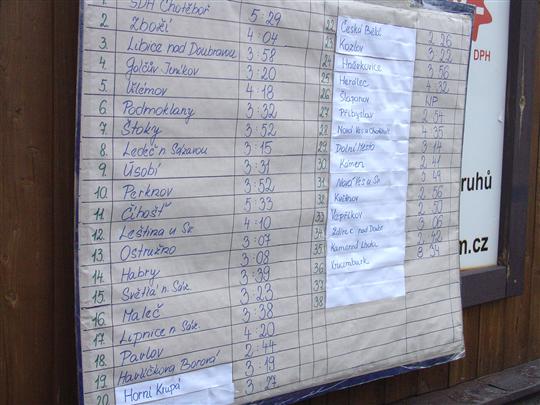 1 SDH Chotěboř 5:29
2 Zboží 4:04
3. Libice nad Doubravou 3:58
4. Golčův Jeníkov 3:20
5. Vilémov 4:18
6. Podmoklany 3:32
7. Štoky 3:52
8. Ledeč n Sázavou 3:15
9. Úsobí 3:31
10. Perknov 3:52
11. Číhošť 5:33
12. Leština u Sv. 4:10
13. Ostružno 3:07
14. Habry 3:08
15. Světlá n. Sáz. 3:39
16. Maleč 3:23
17. Lipnice n. Sáz. 3:38
18. Pavlov 4:20
19. Havlíčkova Borová 2:44
20. Horní Krupá 3:19
3:27
22 Česká Bělá
23 Kozlov 2 26
24 Hněvkovice 3 22
25 Heřálec 3 56
26 Šlapanov 4 32
27 Přibyslav NP
28 Nová Ves u Chotěboře 2 54
29 Dolní Město 4 35
30 Kámen 3 14
31 Nová Ves u Sv. 2 41
32 Květinov 3 49
33 Vepříkov 2 56
34 Ždírec nad Doubr. 2 50
35 Kamenná Lhota 3 06
36 Krucemburk 2 42
37 8 34
38
DPH
ruhů
m.cz